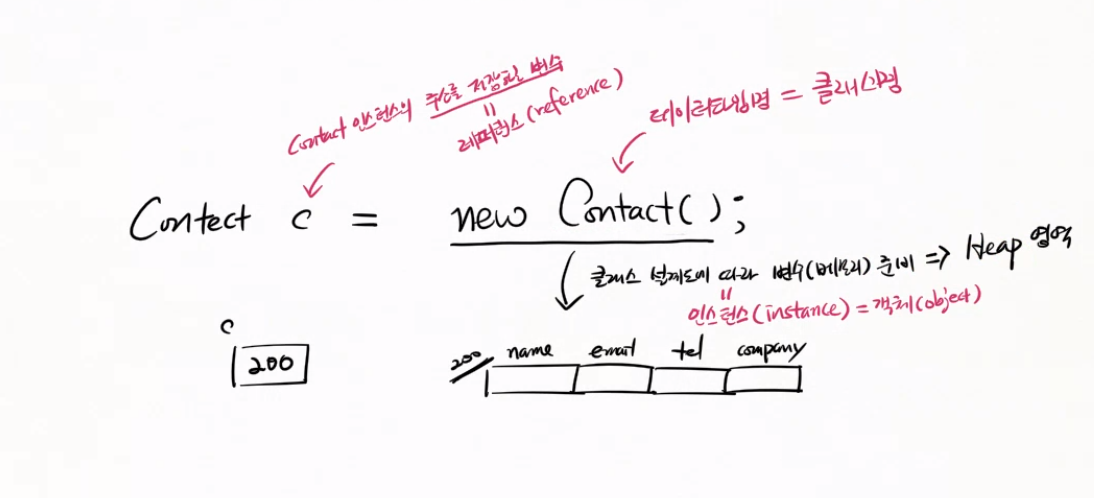 Contact 인스턴스의 주소를 저장한 변수
=
레퍼런스(reference)
데이터타입명 = 클래스명
Contect c = new Contact();
클래스 설계도에 따라 변수(메모리) 준비 => Heap 영역
=
인스턴스(instance) = 객체(object)
c
200
200 name email tel company